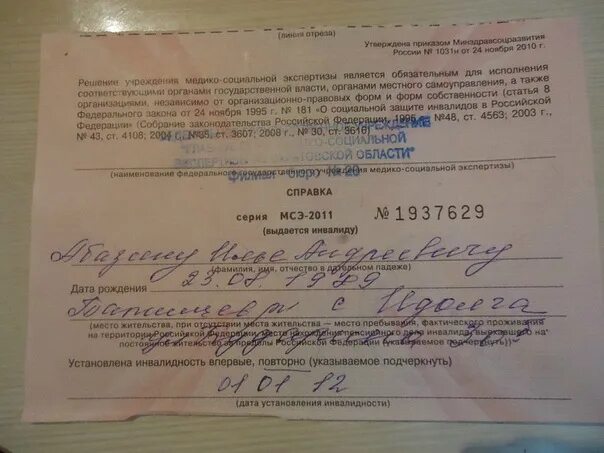 (линия отреза)
Утверждена приказом Минздравсоцразвития
России № 1031н от 24 ноября 2010 г.
Решение учреждения медико-социальной экспертизы является обязательным для исполнения
соответствующими органами государственной власти, органами местного самоуправления, а также
организациями, независимо от организационно-правовых форм и форм собственности (статья 8
Федерального закона от 24 ноября 1995 г. № 181 «О социальной защите инвалидов в Российской
Федерации» (Собрание законодательства Российской Федерации, 1995, № 48, ст. 4563; 2003 г.,
№ 43, ст. 4108; ст. 3607; 2008 г., № 30, ст. 3616)
УЧРЕЖДЕНИЕ
СОЦИАЛЬНОЙ
ОБЛАСТИ"
филиал - бюро № 20
(наименование федерального государственного учреждения медико-социальной экспертизы)
СПРАВКА
серия МСЭ-2011 № 1937629
(выдается инвалиду)
Илье Андреевичу
(фамилия, имя, отчество в дательном падеже)
Дата рождения
с Идолга
(место жительства, при отсутствии места жительства — место пребывания, фактического проживания
на территории Российской Федерации, место нахождения пенсионного дела инвалида, выехавшего на
постоянное жительство за пределы Российской Федерации (указываемое подчеркнуть))
Установлена инвалидность впервые, повторно (указываемое подчеркнуть)
01 01 12
(дата установления инвалидности)